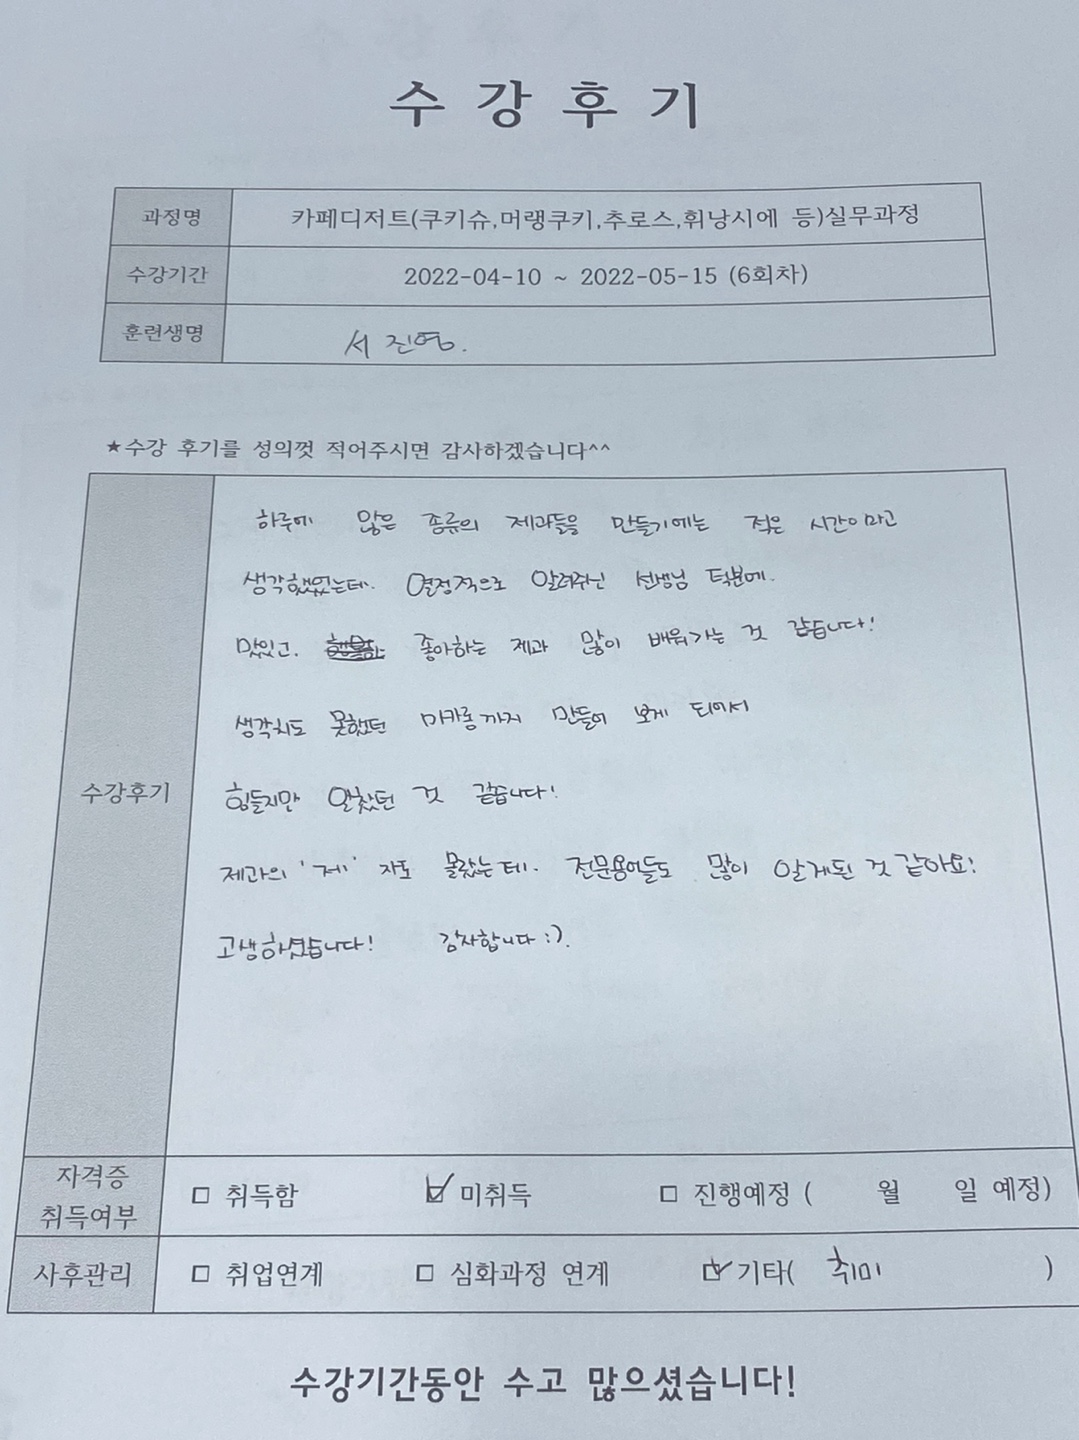 수 강 후 기
과정명 카페디저트(쿠키슈,머랭쿠키,추로스,휘낭시에 등)실무과정
수강기간 2022-04-10 ~ 2022-05-15 (6회차)
훈련생명 서 진영.
★수강 후기를 성의껏 적어주시면 감사하겠습니다^^
수강후기
하루에 많은 종류의 제과들을 만들기에는 적은 시간이라고
생각했었는데. 열정적으로 알려주신 선생님 덕분에.
맛있고. 좋아하는 제과 많이 배워가는 것 같습니다!
생각치도 못했던 마카롱까지 만들어 보게 되어서
힘들지만 알찼던 것 같습니다!
제과의 '제' 자도 몰랐는데. 전문용어들도 많이 알게된 것 같아요!
고생하셨습니다! 감사합니다 :).
자격증 취득여부 □ 취득함 ☑ 미취득 □ 진행예정 ( 월 일 예정)
사후관리 □ 취업연계 □ 심화과정 연계 ☑ 기타( 취미 )
수강기간동안 수고 많으셨습니다!